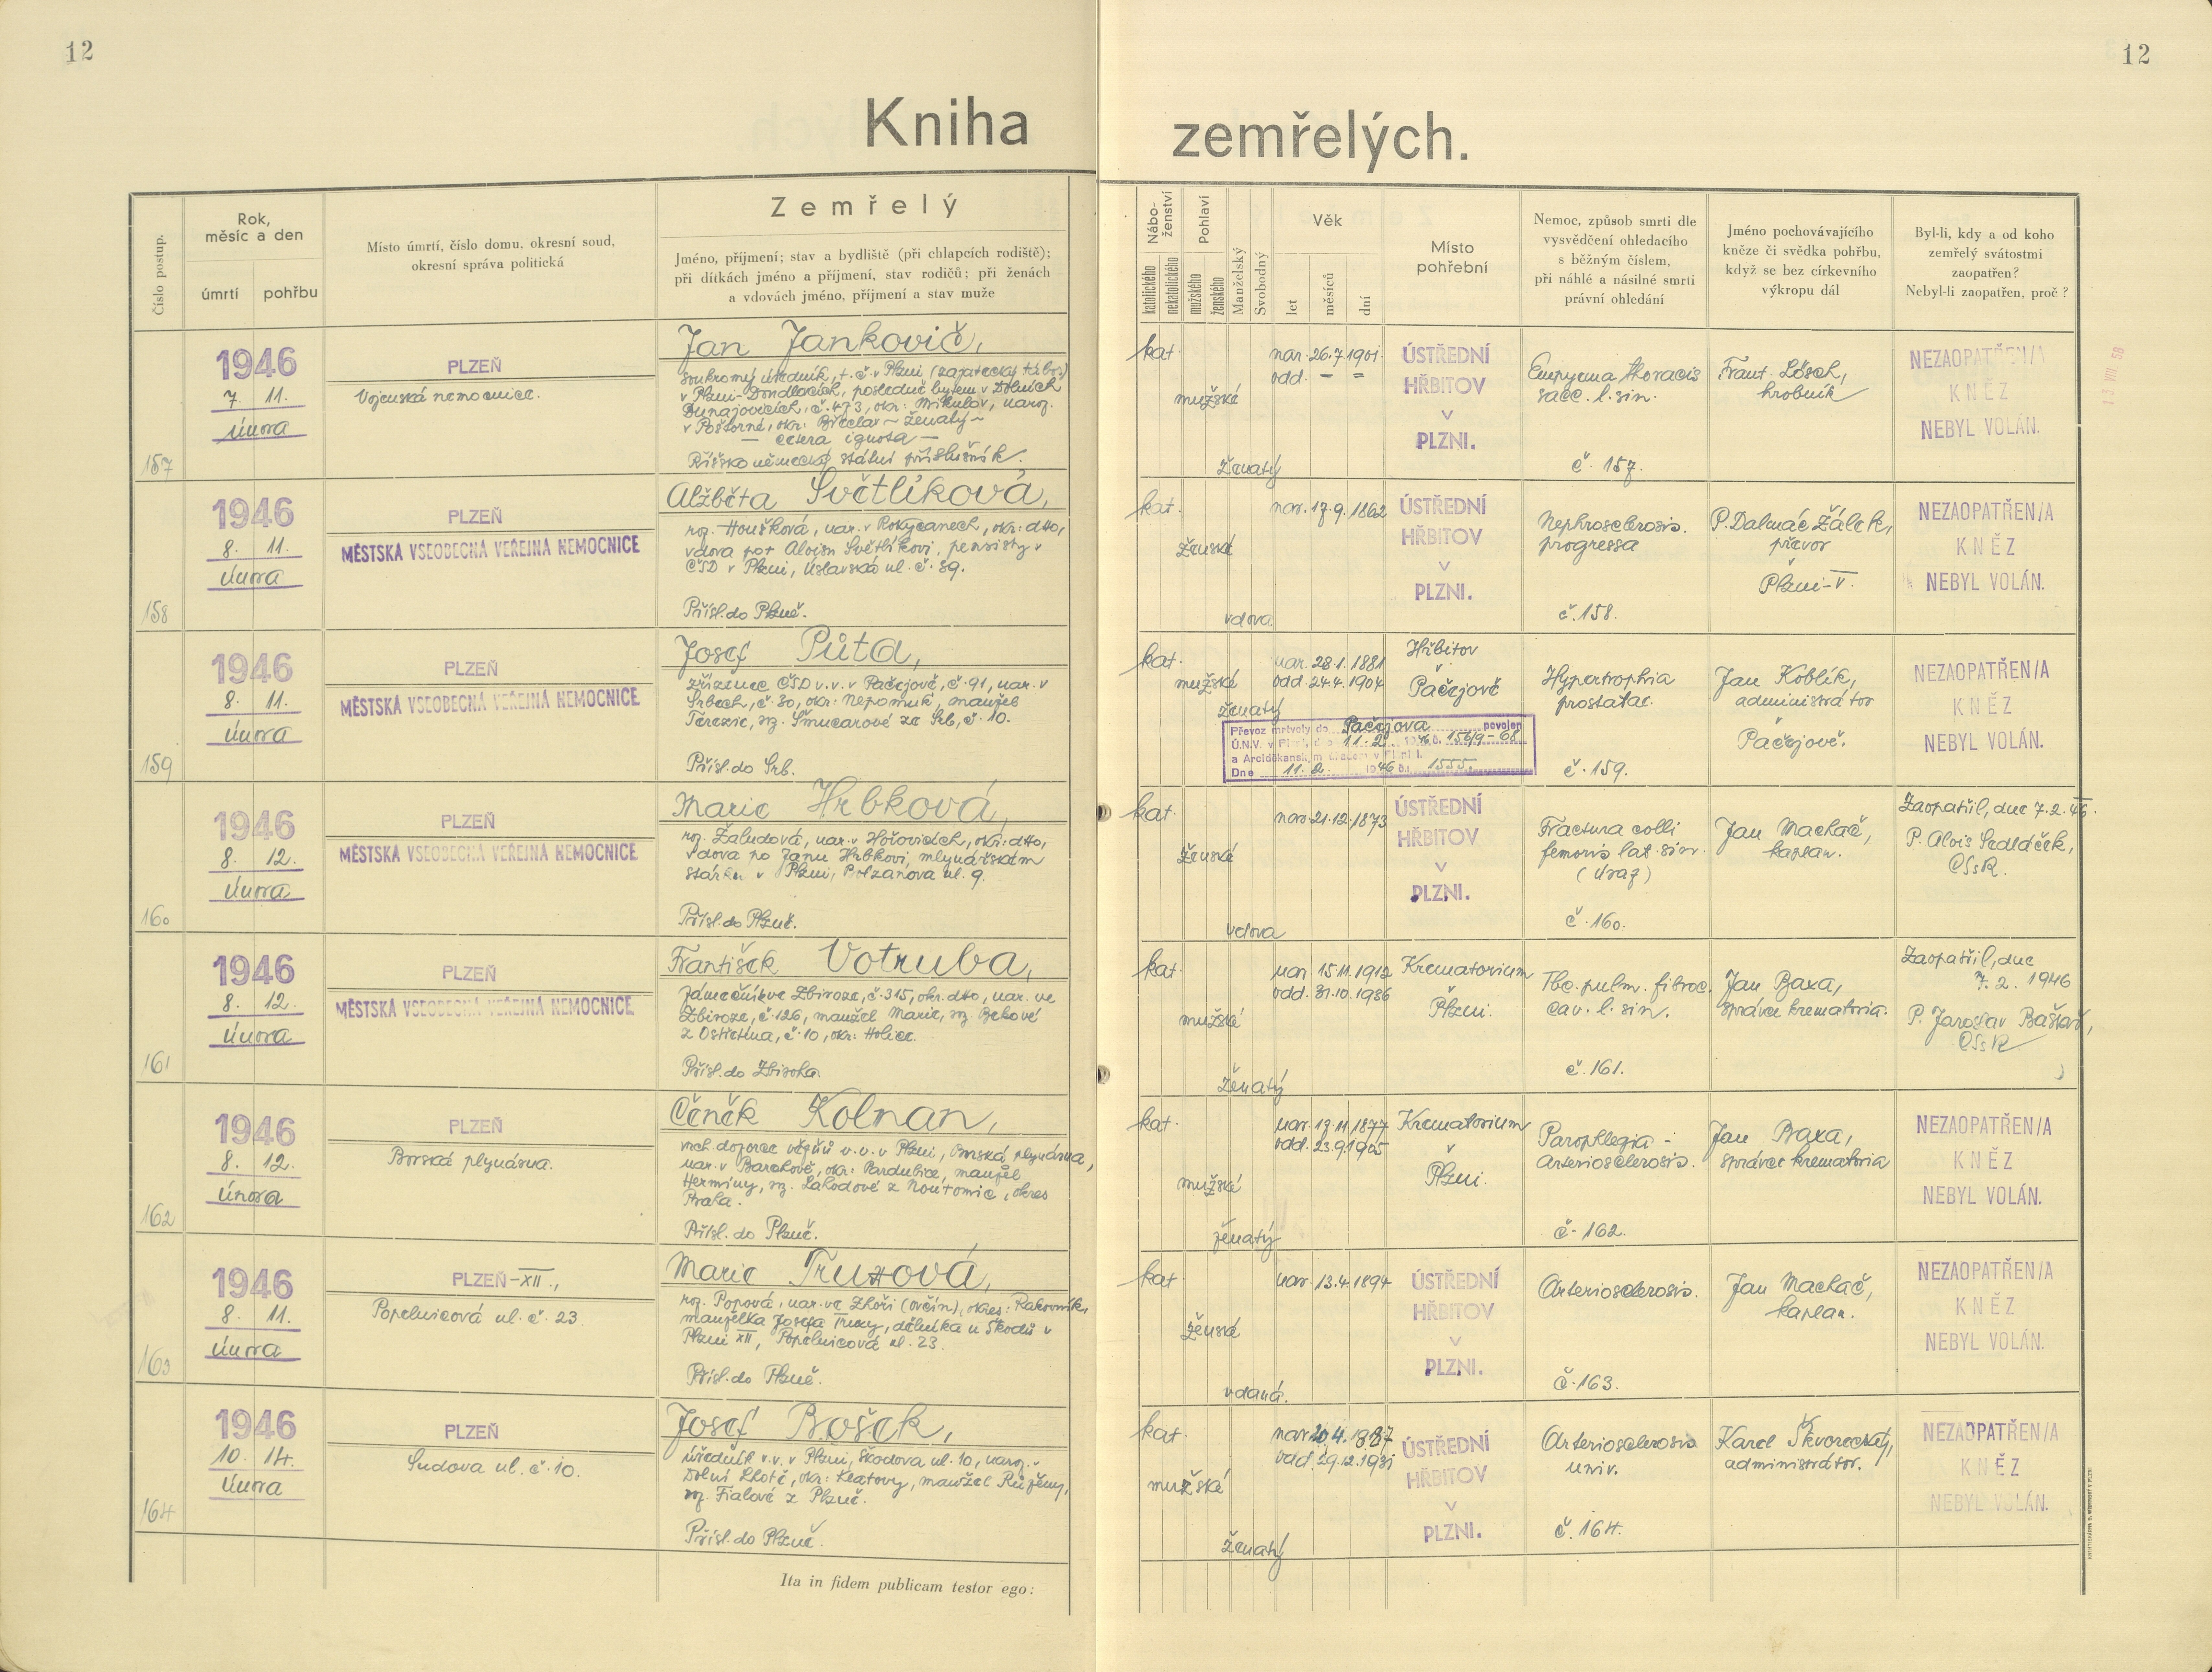 12
12
Kniha zemřelých.
Číslo postup.
Rok,
měsíc a den
úmrtí
pohřbu
Místo úmrtí, číslo domu, okresní soud,
okresní správa politická
Zemřelý
Jméno, příjmení; stav a bydliště (při chlapcích rodiště);
při dítkách jméno a příjmení, stav rodičů; při ženách
a vdovách jméno, příjmení a stav muže
Nábo-
ženství
katolického
nekatolického
Pohlaví
mužského
ženského
Manželský
Svobodný
Věk
let
měsíců
dní
Místo
pohřební
Nemoc, způsob smrti dle
vysvědčení ohledacího
s běžným číslem,
při náhlé a násilné smrti
právní ohledání
Jméno pochovávajícího
kněze či svědka pohřbu,
když se bez církevního
výkropu dál
Byl-li, kdy a od koho
zemřelý svátostmi
zaopatřen?
Nebyl-li zaopatřen, proč?
157
1946
7. 11.
února
PLZEŇ
Vojenská nemocnice.
Jan Jankovič,
soukromý úředník, t. č. v Plzni (zajatecký tábor)
v Plzni-Doudlevcích, posledně bytem v Dolních
Dunajovicích, č. 473, okr. Mikulov, naroz.
v Poštorné, okr. Břeclav - ženatý -
- cetera ignota -
Říšskoněmecký státní příslušník.
kat.
mužské
ženatý
nar. 26. 7. 1901.
odd. - =
ÚSTŘEDNÍ
HŘBITOV
V
PLZNI.
Empyema thoracis
sacc. l. sin.
č. 157.
Frant. Lösch,
hrobník
NEZAOPATŘEN/A
KNĚZ
NEBYL VOLÁN.
13 VIII 58
158
1946
8. 11.
února
PLZEŇ
MĚSTSKÁ VŠEOBECNÁ VEŘEJNÁ NEMOCNICE
Alžběta Světlíková,
roz. Houšková, nar. v Rokycanech, okr. dtto,
vdova po † Aloisu Světlíkovi, pensisty
ČSD v Plzni, Úslavská ul. č. 89.
Přísl. do Plzně.
kat.
ženské
vdova
nar. 17. 9. 1862
ÚSTŘEDNÍ
HŘBITOV
V
PLZNI.
Nephrosclerosis
progressa
č. 158.
P. Dalmác Žálek,
převor
Plzni-V.
NEZAOPATŘEN/A
KNĚZ
NEBYL VOLÁN.
159
1946
8. 11.
února
PLZEŇ
MĚSTSKÁ VŠEOBECNÁ VEŘEJNÁ NEMOCNICE
Josef Půta,
zřízenec ČSD v. v. v Pačejově, č. 91, nar. v
Srbech, č. 30, okr. Nepomuk, manžel
Terezie, roz. Šmucarové ze Srb, č. 10.
Přísl. do Srb.
kat.
mužské
ženatý
nar. 28. 1. 1881
odd. 24. 4. 1904
Hřbitov
v
Pačejově
Převoz mrtvoly do Pačejova povolen
Ú.N.V. v Plzni, dne 11. 2. 1946 č. 156/9-68
a Arciděkanským úřadem v Plzni I.
Dne 11. 2. 1946 č. 1555.
Hypertrophia
prostatae.
č. 159.
Jan Koblík,
administrátor
Pačejově.
NEZAOPATŘEN/A
KNĚZ
NEBYL VOLÁN.
160
1946
8. 12.
února
PLZEŇ
MĚSTSKÁ VŠEOBECNÁ VEŘEJNÁ NEMOCNICE
Marie Hrbková,
roz. Žaludová, nar. v Hořovicích, okr. dtto,
vdova po Janu Hrbkovi, mlynářském
stárku v Plzni, Bolzanova ul. 9.
Přísl. do Plzně.
kat.
ženské
vdova
nar. 21. 12. 1873
ÚSTŘEDNÍ
HŘBITOV
V
PLZNI.
Fractura colli
femoris lat. sin.
(úraz)
č. 160.
Jan Machač,
kaplan.
Zaopatřil, dne 7. 2. 46.
P. Alois Sedláček,
CSsR.
161
1946
8. 12.
února
PLZEŇ
MĚSTSKÁ VŠEOBECNÁ VEŘEJNÁ NEMOCNICE
František Votruba,
zámečník ve Zbiroze, č. 315, okr. dtto, nar. ve
Zbiroze, č. 126, manžel Marie, roz. Bekové
z Ostřetína, č. 10, okr. Holice.
Přísl. do Zbiroha.
kat.
mužské
ženatý
nar. 15. 11. 1912
odd. 31. 10. 1936
Krematorium
v
Plzni.
Tbc. pulm. fibroc.
cav. l. sin.
č. 161.
Jan Baxa,
správce krematoria.
Zaopatřil, dne
7. 2. 1946
P. Jaroslav Baštař,
CSsR
162
1946
8. 12.
února
PLZEŇ
Borská plynárna.
Čeněk Kolman,
vrch. dozorce vězňů v. v. v Plzni, Borská plynárna,
nar. v Barchově, okr. Pardubice, manžel
Hermíny, roz. Lahodové z Noutonic, okres
Praha.
Přísl. do Plzně.
kat.
mužské
ženatý
nar. 19. 11. 1877
odd. 23. 9. 1905
Krematorium
v
Plzni.
Paraplegia -
arteriosclerosis.
č. 162.
Jan Baxa,
správce krematoria
NEZAOPATŘEN/A
KNĚZ
NEBYL VOLÁN.
163
1946
8. 11.
února
PLZEŇ-XII.,
Popelnicová ul. č. 23
Marie Truxová,
roz. Popová, nar. ve Zhoři (ovčín), okres: Rakovník,
manželka Josefa Truxy, dělníka u Škodů v
Plzni XII, Popelnicová ul. 23.
Přísl. do Plzně.
kat.
ženské
vdaná.
nar. 13. 4. 1894
ÚSTŘEDNÍ
HŘBITOV
V
PLZNI.
Arteriosclerosis.
č. 163.
Jan Machač,
kaplan.
NEZAOPATŘEN/A
KNĚZ
NEBYL VOLÁN.
164
1946
10. 14.
února
PLZEŇ
Sudova ul. č. 10.
Josef Bošek,
úředník v. v. v Plzni, Škodova ul. 10, naroz. v
Dolní Lhotě, okr. Klatovy, manžel Růženy,
roz. Fialové z Plzně.
Přísl. do Plzně.
kat.
mužské
ženatý
nar. 4. 1887
odd. 29. 12. 1931
ÚSTŘEDNÍ
HŘBITOV
V
PLZNI.
Arteriosclerosis
univ.
č. 164.
Karel Škvorecký,
administrátor.
NEZAOPATŘEN/A
KNĚZ
NEBYL VOLÁN.
Ita in fidem publicam testor ego: